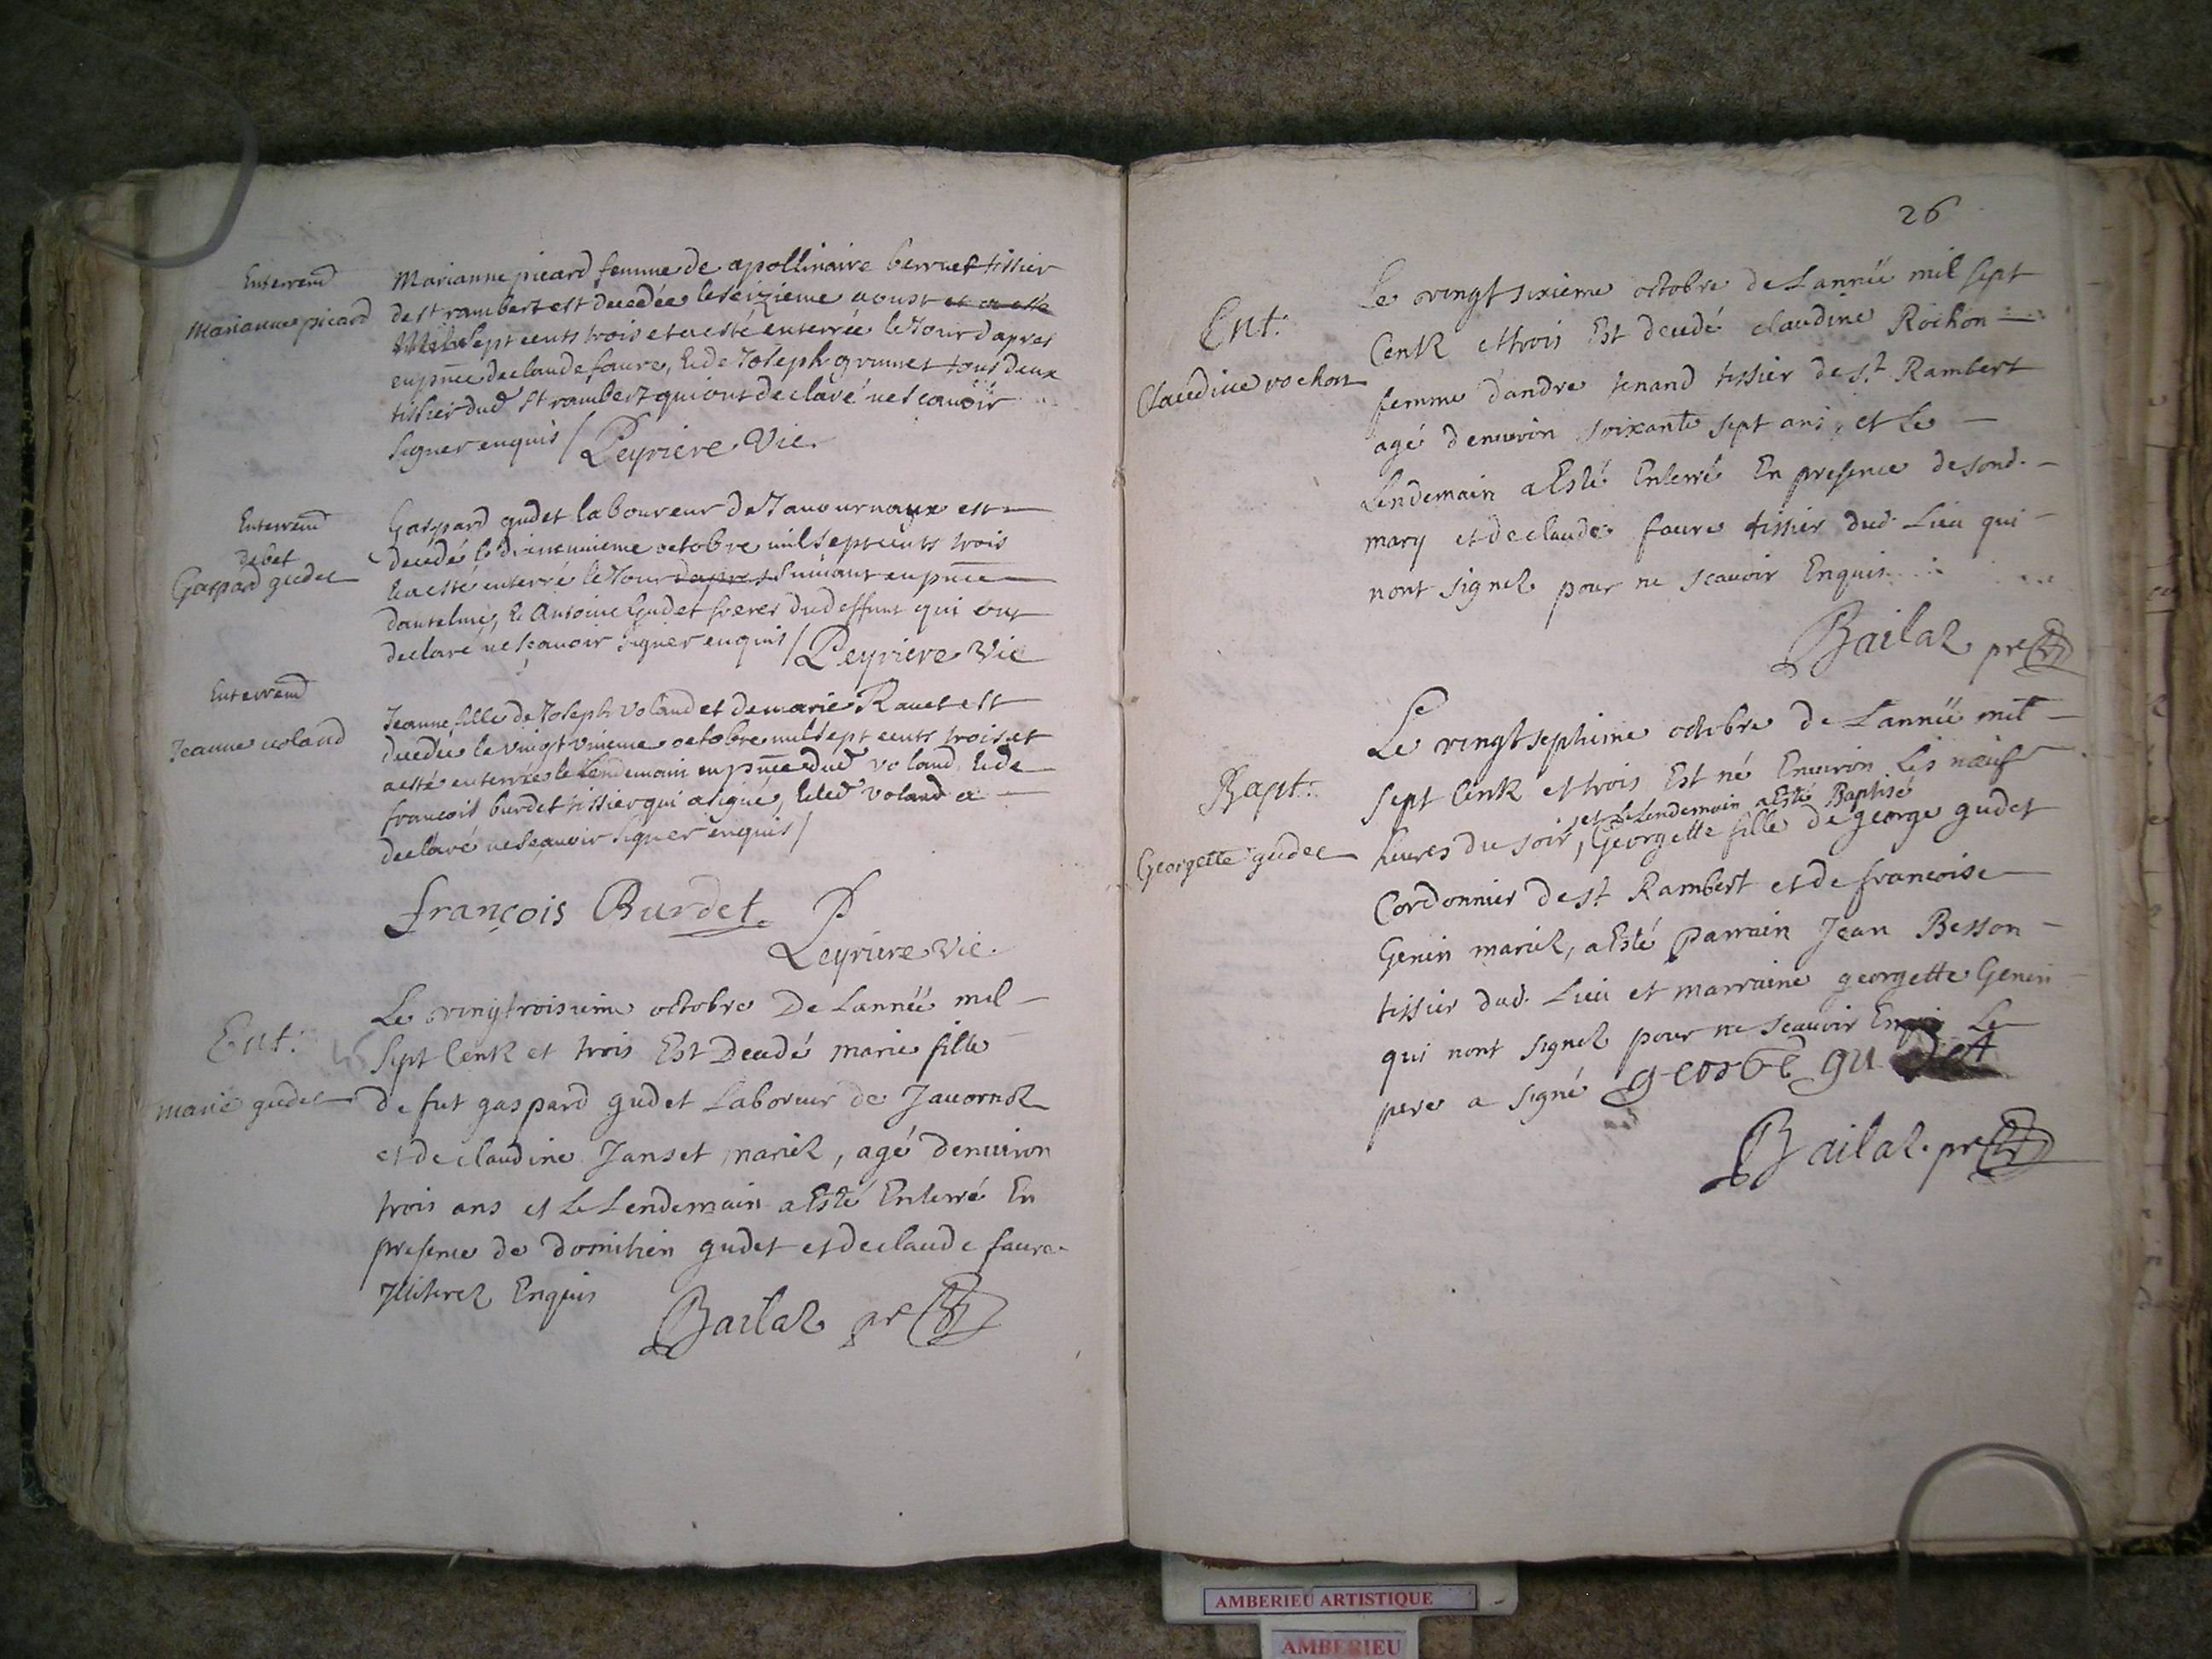 Enterremt
Marianne picard
Marianne picard femme de apollinaire berruet tissier
de st rambert est decedée le seizieme aoust et a esté
Mil sept cents trois et a esté enterrée le Jour d apres
en pnce de claude faure, & de Joseph grumet tous deux
tissier dud st rambert qui ont declaré ne scauoir
signer enquis / Peyriere Vic.
Enterremt
debet
Gaspard gudet
Gaspard gudet laboureur de Jauournaux est
decedé le dixneuuieme octobre mil sept cents trois
& a esté enterré le Jour dapres suiuant en pnce
dantelme, & Antoine Gudet freres dud deffunt qui ont
declaré ne scauoir signer enquis / Peyriere Vic
Enterremt
Jeanne uoland
Jeanne fille de Joseph Voland et de marie Rauet est
decedée le vingt vnieme octobre mil sept cents trois et
a esté enterrée le lendemain en pnce dud voland, & de
francois burdet tissier qui a signé, & led voland a
declaré ne scauoir signer enquis /
françois Burdet. P
Peyriere Vic.
Ent:
marie gudet
Le vingtroisieme octobre De Lannéé mil
sept Centz et trois Est Decedé marie fille
de fut gaspard gudet Laboreur de Jauornoz
et de claudine Janset mariez, agé denuiron
trois ans et Le Lendemain a Esté Enterré En
presence de domitien gudet et de claude faure
Jlliterez Enquis
Bailaz pr
26
Ent:
Claudine rochon
Le vingt sixieme octobre de Lannéé mil sept
Centz et trois Est decedé claudine Rochon
femme dandre tenand tissier de st Rambert
agé denuiron soixante sept ans, et Le
Lendemain a Esté Enterré En presence de sond.
mary et de claude faure tissier dud. Lieu qui
nont signez pour ne scauoir Enquis
Bailaz pr
Bapt:
Georgette gudet
Le vingt septieme octobre de Lannéé mil
sept Centz et trois Est né Enuiron Les neuf
et Le Lendemain a Esté Baptisé
heures du soir, Georgette fille de george gudet
Cordonnier de st Rambert et de francoise
Genin mariez, a Esté parrain Jean Besson
tissier dud. Lieu et marraine georgette Genin
qui nont signez pour ne scauoir Enquis Le
pere a signé george gudet
Bailaz. pr
AMBERIEU ARTISTIQUE
AMBERIEU